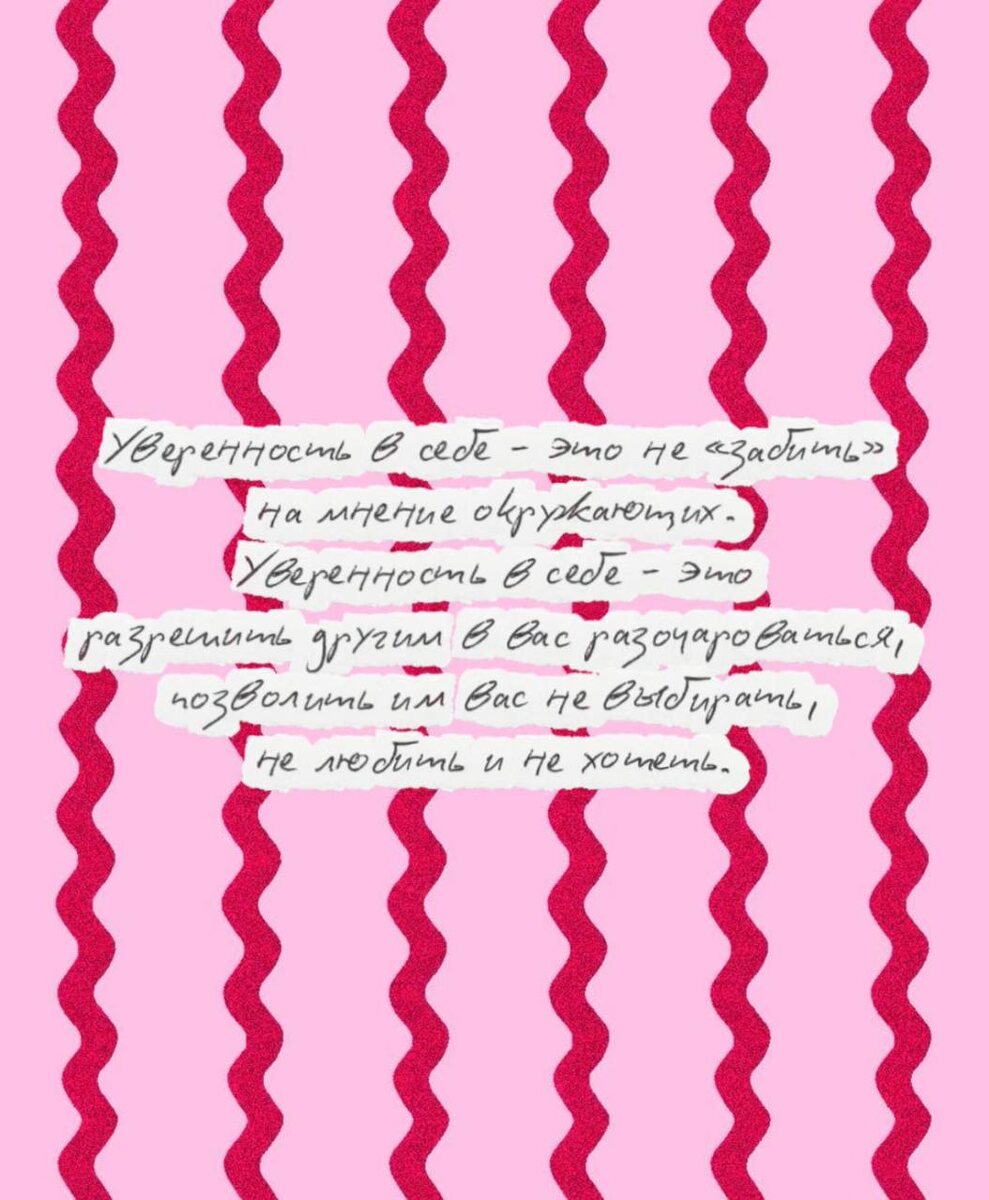 Уверенность в себе - это не «забить»
на мнение окружающих.
Уверенность в себе - это
разрешить другим в вас разочароваться,
позволить им вас не выбирать,
не любить и не хотеть.